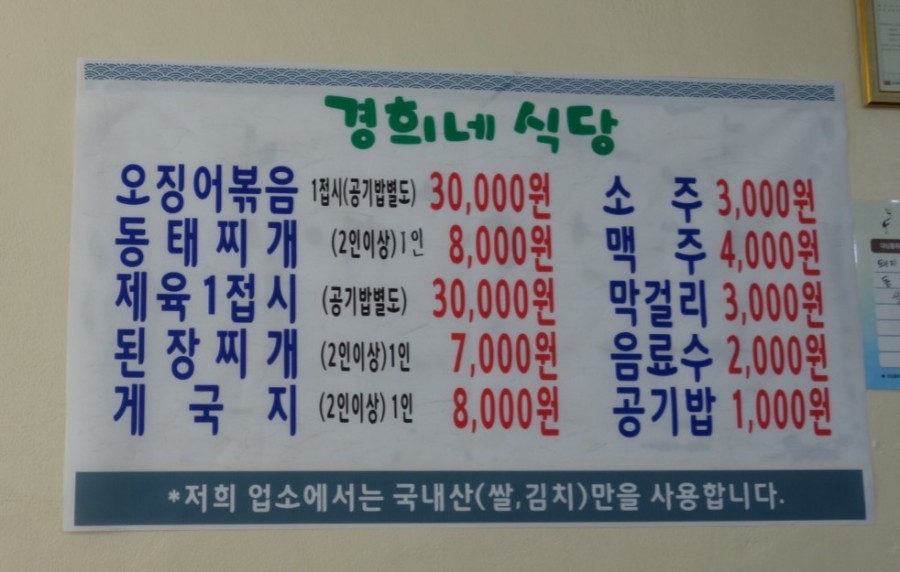 경희네 식당
오징어볶음 1접시(공기밥별도) 30,000원
동태찌개 (2인이상)1인 8,000원
제육1접시 (공기밥별도) 30,000원
된장찌개 (2인이상)1인 7,000원
게국지 (2인이상)1인 8,000원
소주 3,000원
맥주 4,000원
막걸리 3,000원
음료수 2,000원
공기밥 1,000원
*저희 업소에서는 국내산(쌀,김치)만을 사용합니다.